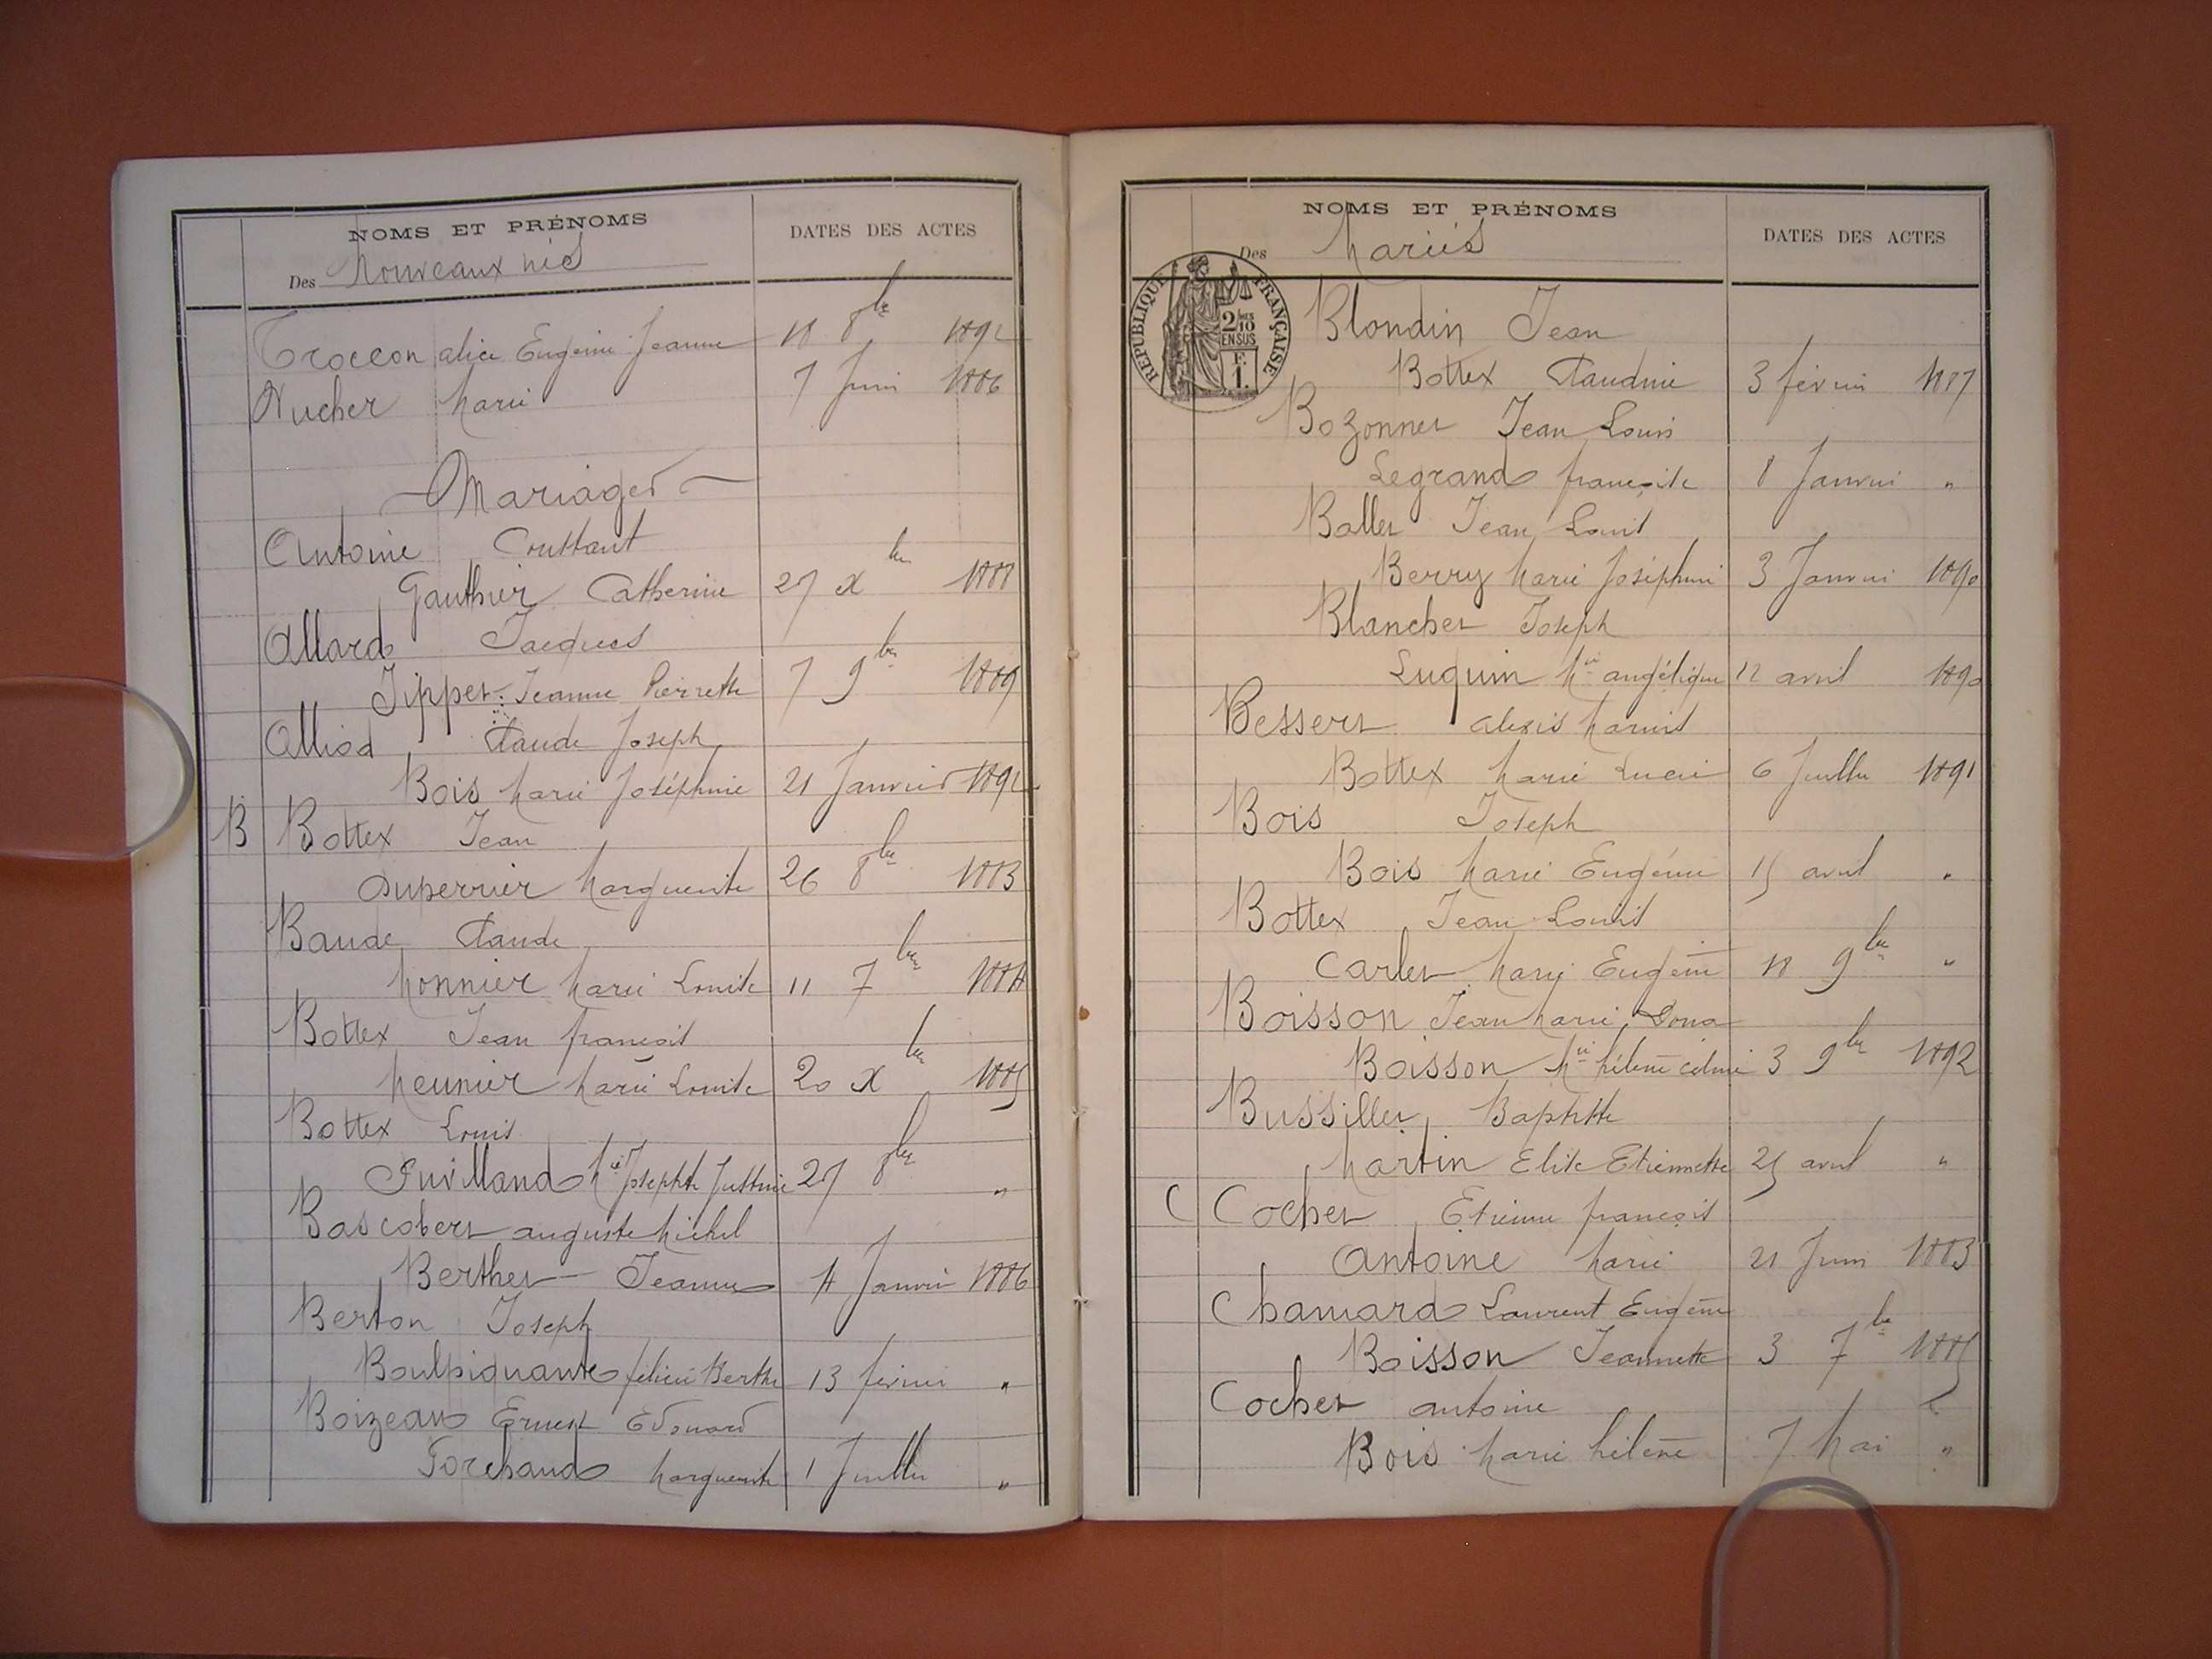 NOMS ET PRÉNOMS
DATES DES ACTES
Des Nouveaux nés
Troccon alice Eugénie Jeanne 18 8bre 1892
Vucher Marie 7 Juin 1886
Mariages
Antoine Constant
Gauthier Catherine 27 Xbre 1888
Allard Jacques
Tippet Jeanne Pierrette 7 9bre 1889
Alliod Claude Joseph
Bois Marie Joséphine 21 Janvier 1892
B Bottex Jean
Duperrier Marguerite 26 8bre 1883
Baude Claude
Monnier Marie Louise 11 7bre 1884
Bottex Jean françois
Meunier Marie Louise 20 Xbre 1885
Bottex Louis
Juvilland Mie Josephte Justine 27 8bre "
Bascobert auguste Michel
Berthet Jeanne 4 Janvier 1886
Berton Joseph
Boulpiquante félicie Berthe 13 février "
Boizeau Ernest Edouard
Forchaud Marguerite 1 Juillet "
NOMS ET PRÉNOMS
DATES DES ACTES
Des Mariés
RÉPUBLIQUE FRANÇAISE
2/10
EN SUS
F.
1.
Blondin Jean
Bottex Claudine 3 février 1887
Bozonnet Jean Louis
Legrand françoise 8 Janvier "
Ballet Jean Louis
Berry Marie Joséphine 3 Janvier 1890
Blanchet Joseph
Luquin Mie angélique 12 avril 1890
Bessert alexis Marius
Bottex Marie Lucie 6 Juillet 1891
Bois Joseph
Bois Marie Eugénie 15 avril "
Bottex Jean Louis
Carlet Marie Eugénie 18 9bre "
Boisson Jean Marie
Boisson Mie hélène 3 9bre 1892
Bussillet Baptiste
Martin Elise Etiennette 25 avril "
C Cochet Etienne françois
Antoine Marie 21 Juin 1883
Chamard Laurent Eugène
Boisson Jeannette 3 7bre 1885
Cochet antoine
Bois Marie hélène 7 Mai "